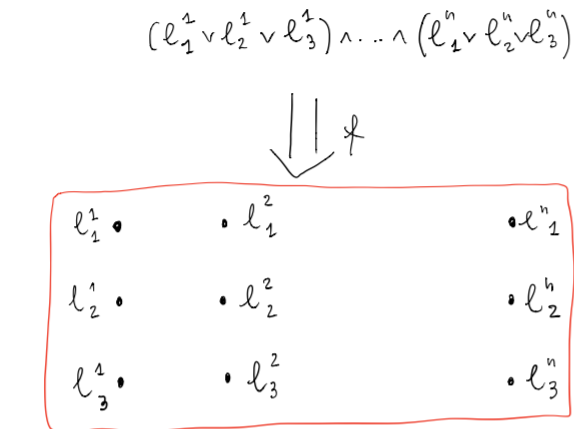 (ℓ₁¹ ∨ ℓ₂¹ ∨ ℓ₃¹) ∧ ... ∧ (ℓ₁ⁿ ∨ ℓ₂ⁿ ∨ ℓ₃ⁿ)
f
ℓ₁¹ • • ℓ₁² • ℓ₁ⁿ
ℓ₂¹ • • ℓ₂² • ℓ₂ⁿ
ℓ₃¹ • • ℓ₃² • ℓ₃ⁿ